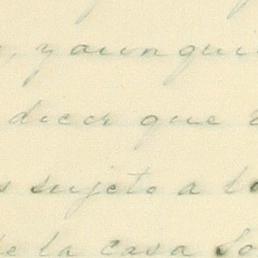 y aunqui
decir que
sujeto a
de la casa